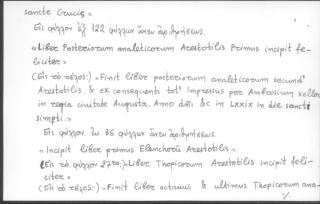 sancte Crucis»
Εἰς φύλλον ἐξ 122 φύλλων ἄνευ ἀριθμήσεως.
«Liber Posteriorum analeticorum Arestotilis Primus incipit fe-
liciter»
(Εἰς τὸ τέλος:) «Finit liber posteriorum analeticorum secund'
Arestotilis, & ex consequenti tot' Impressus per Ambrosium Keller
in regia ciuitate Augusta. Anno dñi &c in Lxxix in die sancti
simpti.»
Εἰς φύλλον ἐκ 36 φύλλων ἄνευ ἀριθμήσεως.
«Incipit liber primus Elenchorũ Arestotilis»
(Εἰς τὸ φύλλον 27ον:) «Liber Thopicorum Arestotilis incipit feli-
citer»
(Εἰς τὸ τέλος:) «Finit liber octauus & ultimus Thopicorum ana-